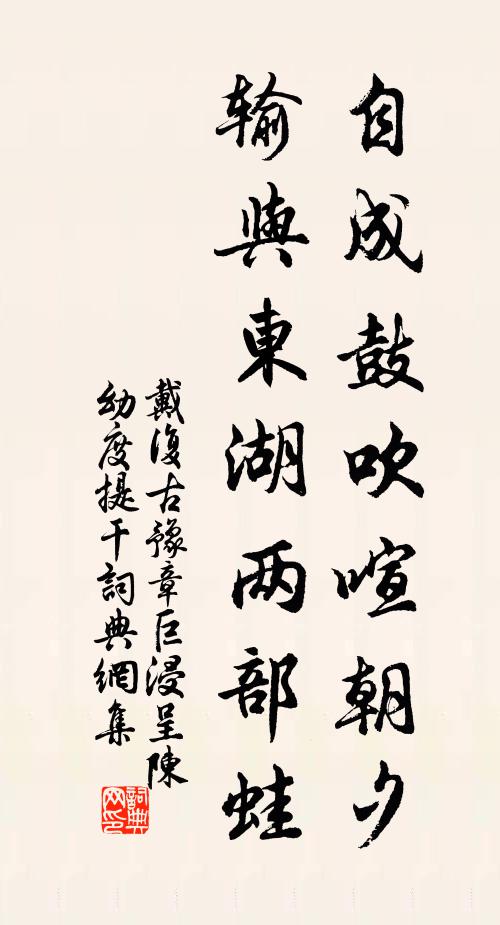 自成鼓吹喧朝夕
输與東湖两部蛙
戴復古豫章巨浸呈陳
幼度提干詞典網集
詞典网印